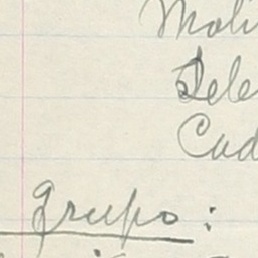 Moli
Sele
Cad
grupo: